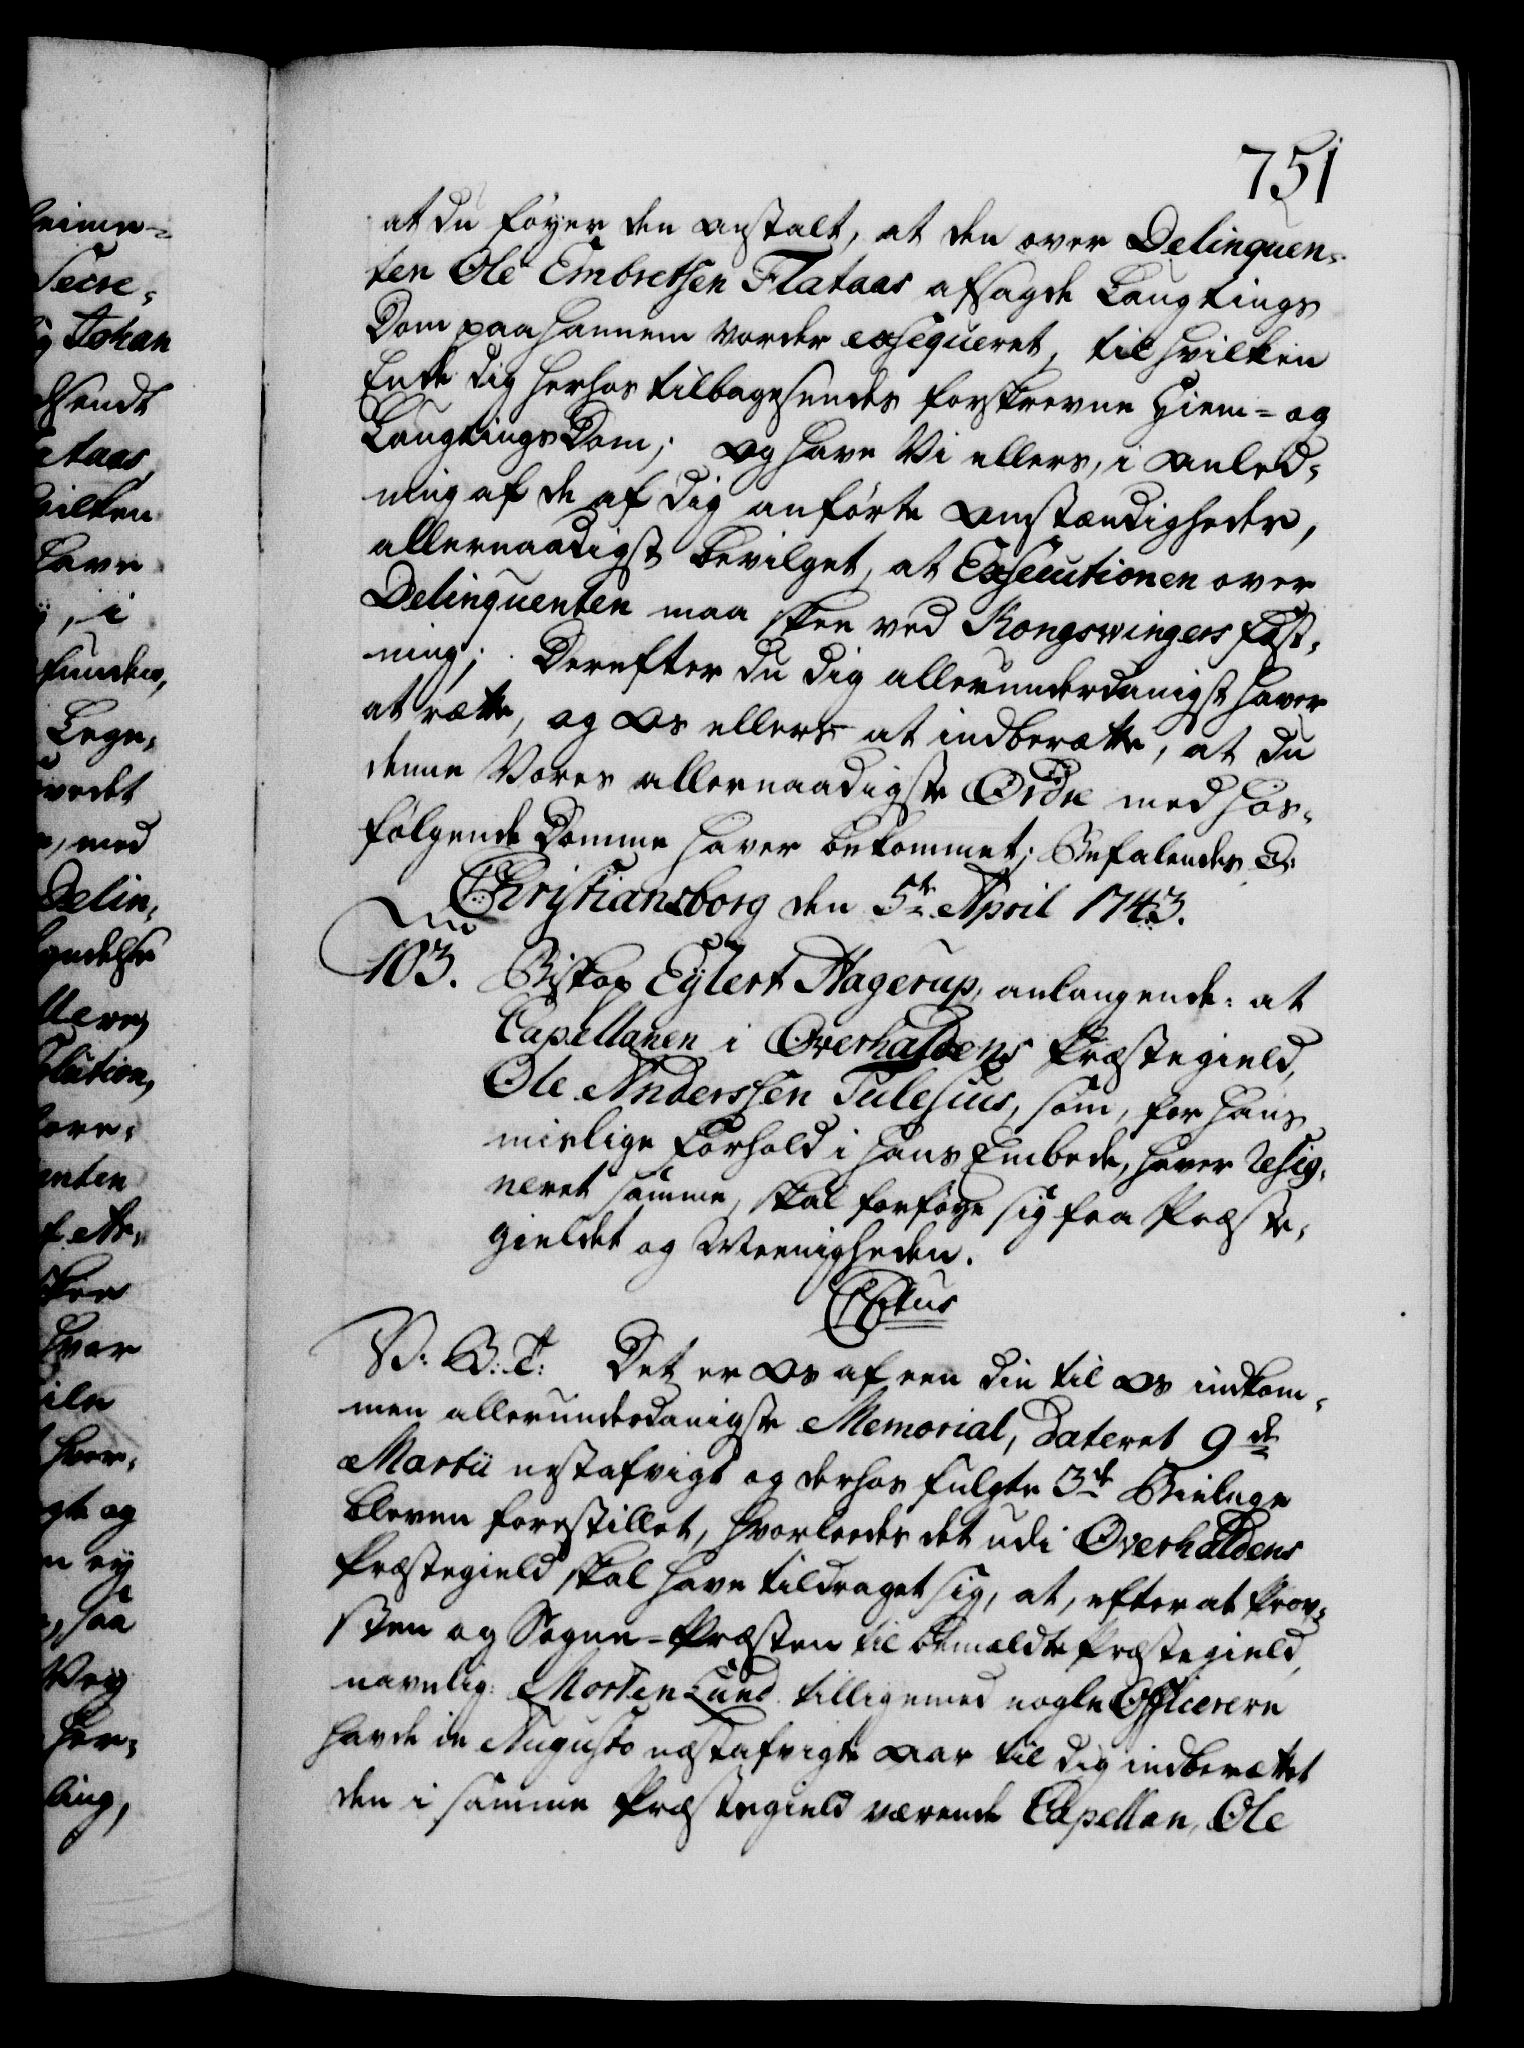 751
at du føyer den Anstalt, at den over Delinquen-
ten Ole Embretsen Flataas afsagde Laugtings
Dom paa hannem vorder exsequeret, til hvilken
Ende dig herhos tilbagesendes forskrevne Hiem- og
Laugtings Dom; og have Vi ellers, i Anled-
ning af de af dig anførte Omstændigheder,
allernaadigst bevilget, at Executionen over
Delinquenten maa skee ved Kongswingers Fæst-
ning; Derefter du dig allerunderdanigst haver
at rætte, og Os ellers at indberætte, at du
denne Vores allernaadigste Ordre med hos-
følgende Domme haver bekommet; Befalendes &:
Christiansborg den 5te April 1743.
103. Biskop Eylert Hagerup, anlangende: at
Capellanen i Overhaldens Præstegield,
Ole Anderssen Tulesius, som, for hans
mislige Forhold i hans Embede, haver resig-
neret samme, skal forføye sig fra Præste-
gieldet og Meenigheden.
CCtus
V: G: T: Det er Os af een din til Os indkom-
men allerunderdanigste Memorial, dateret 9de
Martii nestafvigt og derhos fulgte 3de Bielage
bleven forestillet, hvorleedes det udi Overhaldens
Præstegield skal have tildraget sig, at, efter at Prov-
sten og Sogne-Præsten til bemældte Præstegield,
navnlig: Morten Lund tilligemed nogle Officerere
havde in Augusto næstafvigte Aar til dig indberættet
den i samme Præstegield værende Capellan, Ole